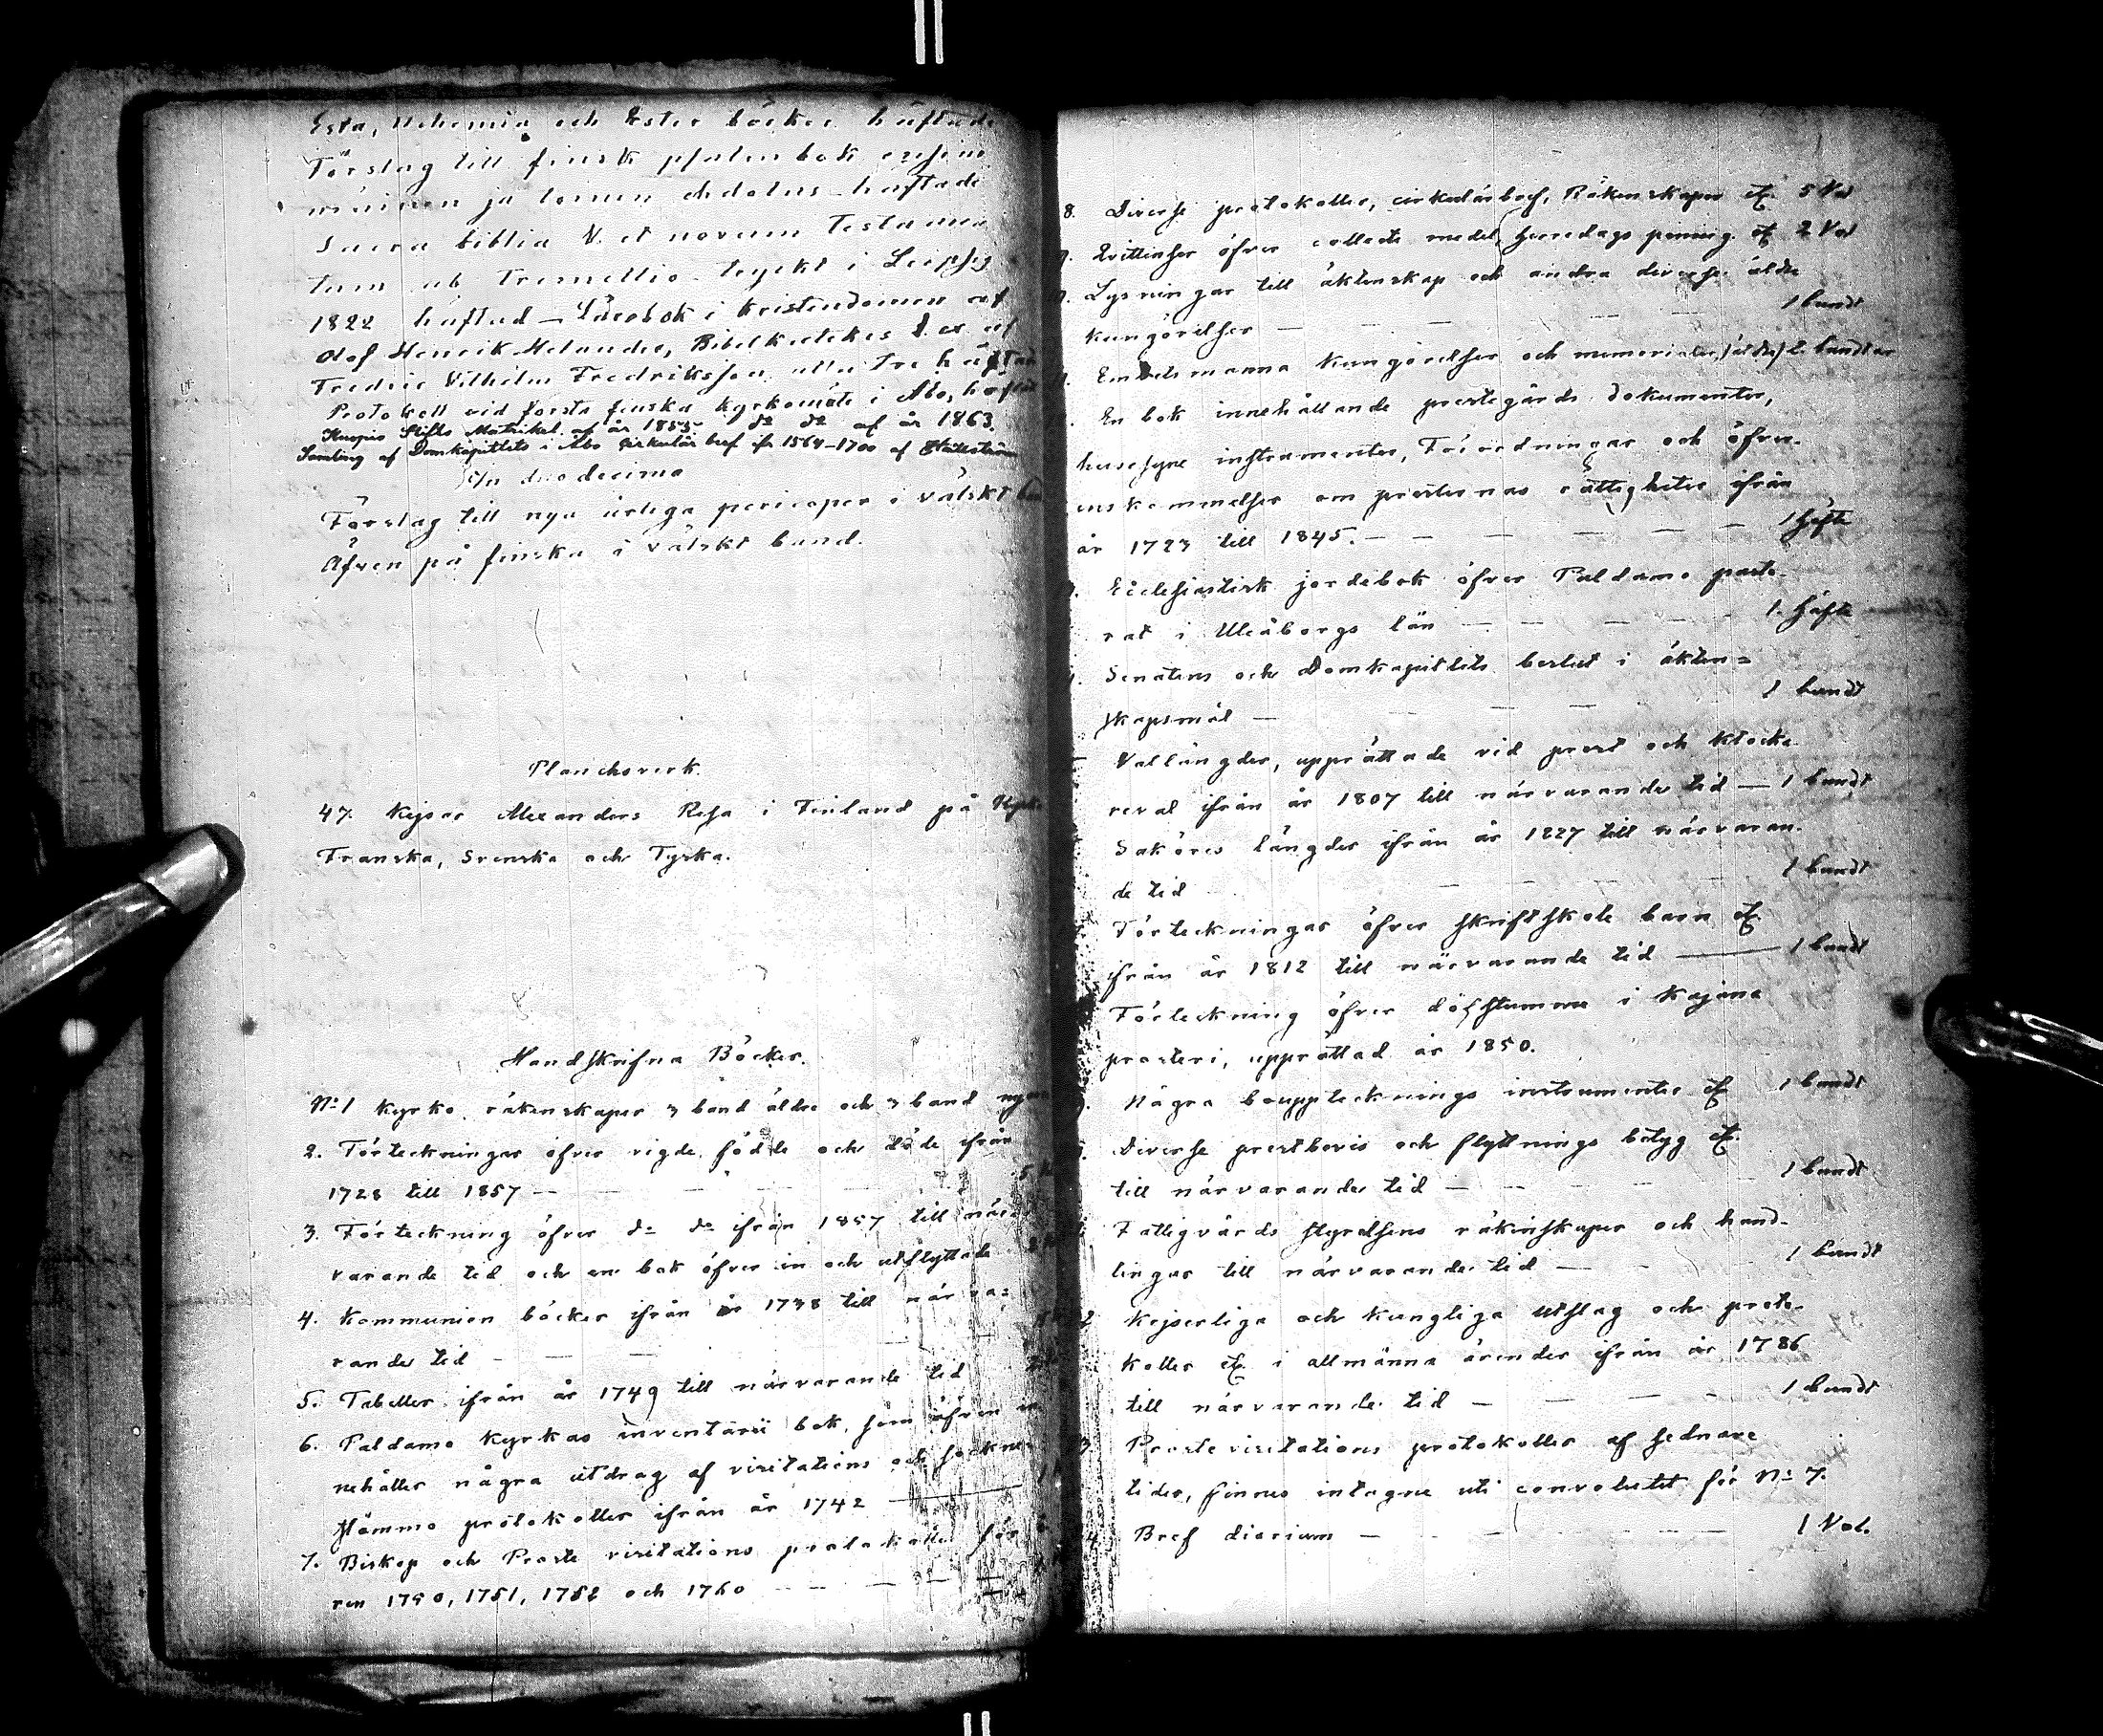 Esra, Nehemia och Ester böcker häftade
Förslag till finsk psalmbok
ja häftade
Sacra biblia V. et novum Testamen
tum ab Tremellio tryckt i Leipzig
1822 häftad — Lärobok i kristendomen af
Olof Henrik Helander, Bibelkatekes d. o. af
Fredric Vilhelm Fredriksson alla tre häftad
Protokoll vid första finska kyrkomöte i Åbo, häftad
Kuopio Stifts Matrikel af år 1853. do do af år 1863.
Samling af Domkapitlets i Åbo cirkulär bref ifr 1564–1700 af
In duodecimo
Förslag till nya årliga pericoper i välskt
Äfven på finska i välskt band.
Planchverk.
47. Kejsar Alexanders Resa i Finland på
Franska, Svenska och Tyska.
Handskrifna Böcker.
No 1 Kyrko räkenskaper 3 band äldre och 3 band
2. Förteckningar öfver vigde, födde och döde ifrån
1728 till 1857 —
3. Förteckning öfver do do ifrån 1857 till när
varande tid och en bok öfver in och utflyttade
4. Kommunion böcker ifrån år 1738 till närva=
rande tid —
5. Tabeller ifrån år 1749 till närvarande tid
6. Paldamo kyrkas inventarii bok, som äfven in
nehåller några utdrag af visitations och sockne
stämmo protokoller ifrån år 1742
7. Biskop och Proste visitations protokoller för
ren 1750, 1751, 1752 och 1760
8. Diverse protokoller, cirkulärbref, Räkenskaper etc. 5 Vol
Qvittenser öfver collecte medel, herredags penning. etc 2 Vol
Lysningar till äktenskap och andra diverse äldre
kungörelser — 1 bundt
Embetsmanna kungörelser och memorialer, (äldre) 2 bundtar
En bok innehållande prestegårds dokumenter,
husesyne instrumenter, Förordningar och öfver-
enskommelser om presternas rättigheter ifrån
år 1723 till 1845. — 1 häfte
Ecclesiastisk jordebok öfver Paldamo pasto-
rat i Uleåborgs län — 1 häfte
Senatens och Domkapitlets beslut i äkten=
skapsmål — 1 bundt
Vallängder, upprättade vid prest och klocka-
reval ifrån år 1807 till närvarande tid — 1 bundt
Saköres längder ifrån år 1827 till närvaran-
de tid 1 bundt
Förteckningar öfver skriftskole barn etc.
ifrån år 1812 till närvarande tid — 1 bundt
Förteckning öfver döfstumme i Kajana
prosteri, upprättad år 1850.
Några bouppteckningsinstrumenter etc 1 bundt
Diverse prestbevis och flyttnings betyg etc.
till närvarande tid — 1 bundt
Fattigvårds styrelsens räkinskaper och hand-
lingar till närvarande tid — 1 bundt
2 Kejserliga och kungliga utslag och proto-
koller etc. i allmänna ärender ifrån år 1786
till närvarande tid — 1 bundt
3. Prostevisitations protokoller af sednare
tider, finnes intagne uti convolutet för No 7.
4. Bref diarium — 1 Vol.